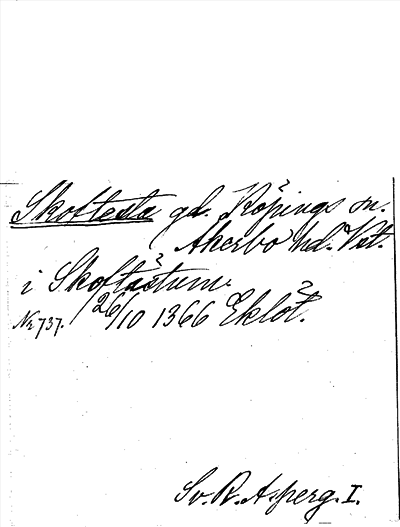 Skoftesta gd. Köpings sn.
Åkerbo hd. Vst.
i Skoftastum
Nr 737. 26/10 1366 Eklöt.
Sv. R. A. perg. I.